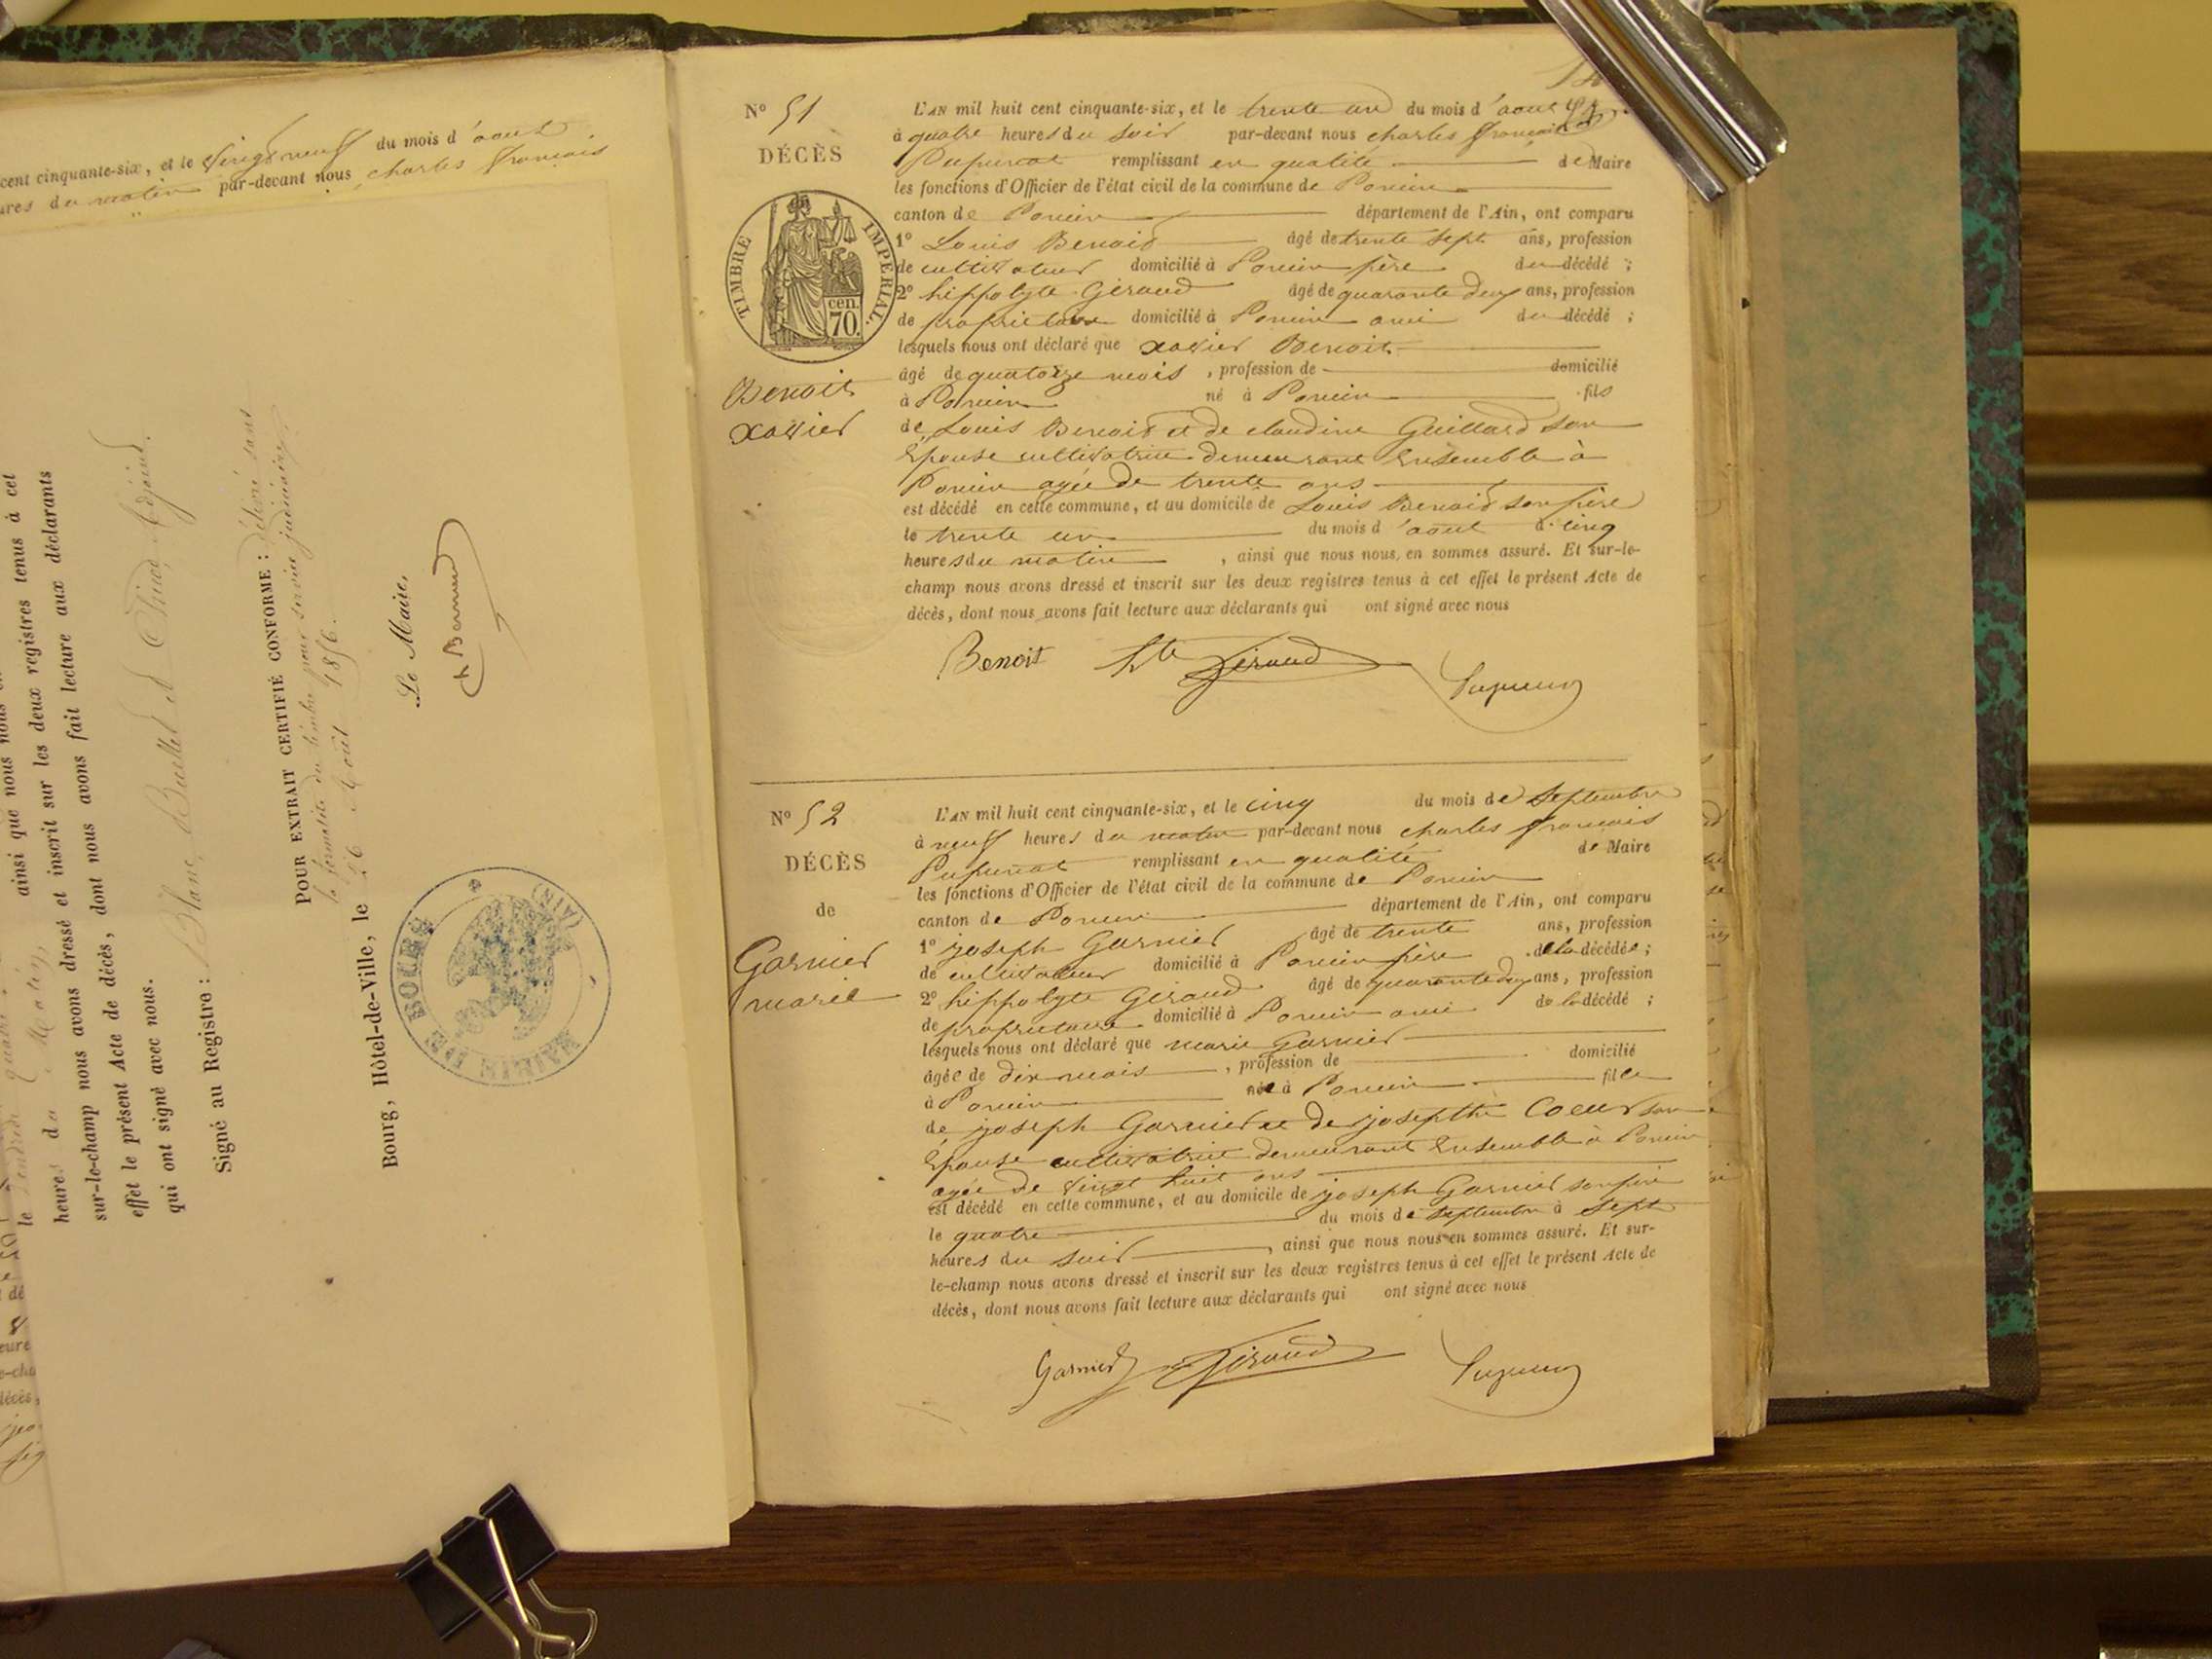 cent cinquante-six, et le vingt neuf du mois d'aout
ures du matin par-devant nous charles françois
ainsi que nous nous
heures du
sur-le-champ nous avons dressé et inscrit sur les deux registres tenus à cet
effet le présent Acte de décès, dont nous avons fait lecture aux déclarants
qui ont signé avec nous.
Signé au Registre : Blanc, Buellet et Adjoint.
POUR EXTRAIT CERTIFIÉ CONFORME : délivré sans
la formalité du timbre pour service judiciaire.
Bourg, Hôtel-de-Ville, le 26 Août 1856.
Le Maire,
MAIRIE DE BOURG (AIN)
N° 51
DÉCÈS
TIMBRE IMPERIAL.
cen.
70.
Benoit
xavier
L'AN mil huit cent cinquante-six, et le trente un du mois d'aout
à quatre heures du soir par-devant nous charles françois
Pupunat remplissant en qualité de Maire
les fonctions d'Officier de l'état civil de la commune de Poncin
canton de Poncin département de l'Ain, ont comparu
1° Louis Benoit âgé de trente sept ans, profession
de cultivateur domicilié à Poncin père du décédé ;
2° hippolyte Giraud âgé de quarante deux ans, profession
de propriétaire domicilié à Poncin ami du décédé ;
lesquels nous ont déclaré que xavier Benoit
âgé de quatorze mois , profession de domicilié
à Poncin né à Poncin fils
de Louis Benoit et de claudine Guillard son
Epouse cultivatrice demeurant Ensemble à
Poncin agée de trente ans
est décédé en cette commune, et au domicile de Louis Benoit son père
le trente un du mois d'aout à cinq
heures du matin , ainsi que nous nous en sommes assuré. Et sur-le-
champ nous avons dressé et inscrit sur les deux registres tenus à cet effet le présent Acte de
décès, dont nous avons fait lecture aux déclarants qui ont signé avec nous
Benoit Hte Giraud Pupunat
N° 52
DÉCÈS
de
Garnier
marie
L'AN mil huit cent cinquante-six, et le cinq du mois de Septembre
à neuf heures du matin par-devant nous charles françois
Pupunat remplissant en qualité de Maire
les fonctions d'Officier de l'état civil de la commune de Poncin
canton de Poncin département de l'Ain, ont comparu
1° joseph Garnier âgé de trente ans, profession
de cultivateur domicilié à Poncin père de la décédée ;
2° hippolyte Giraud âgé de quarante deux ans, profession
de propriétaire domicilié à Poncin ami de la décédé ;
lesquels nous ont déclaré que marie Garnier
âgée de dix mois , profession de domicilié
à Poncin née à Poncin fille
de joseph Garnier et de josephte Coeur son
Epouse cultivatrice demeurant Ensemble à Poncin
agée de vingt huit ans
est décédé en cette commune, et au domicile de joseph Garnier son père
le quatre du mois de septembre à sept
heures du soir , ainsi que nous nous en sommes assuré. Et sur-
le-champ nous avons dressé et inscrit sur les deux registres tenus à cet effet le présent Acte de
décès, dont nous avons fait lecture aux déclarants qui ont signé avec nous
Garnier Giraud Pupunat